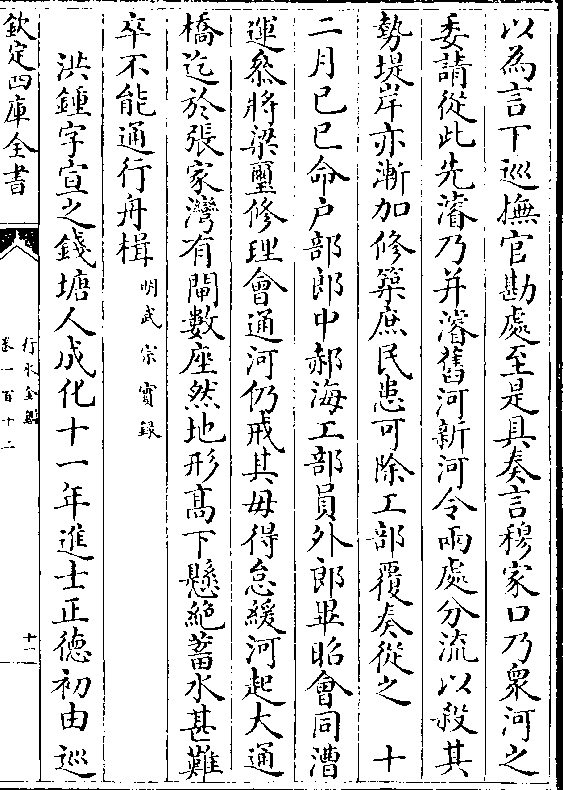 以為言下巡撫官勘處至是具奏言穆家口乃衆河之
委請從此先濬乃并濬舊河新河令兩處分流以殺其
勢堤岸亦漸加修築庶民患可除工部覆奏從之　十
二月己巳命户部郎中郝海工部員外郎畢昭會同漕
運叅將梁璽修理會通河仍戒其毋得怠緩河起大通
橋迄於張家灣有閘數座然地形髙下懸絶蓄水甚難
卒不能通行舟楫明武宗實録
洪鍾字宣之錢塘人成化十一年進士正德初由巡
欽定四庫全書
行水金鑑
卷一百十二
十二